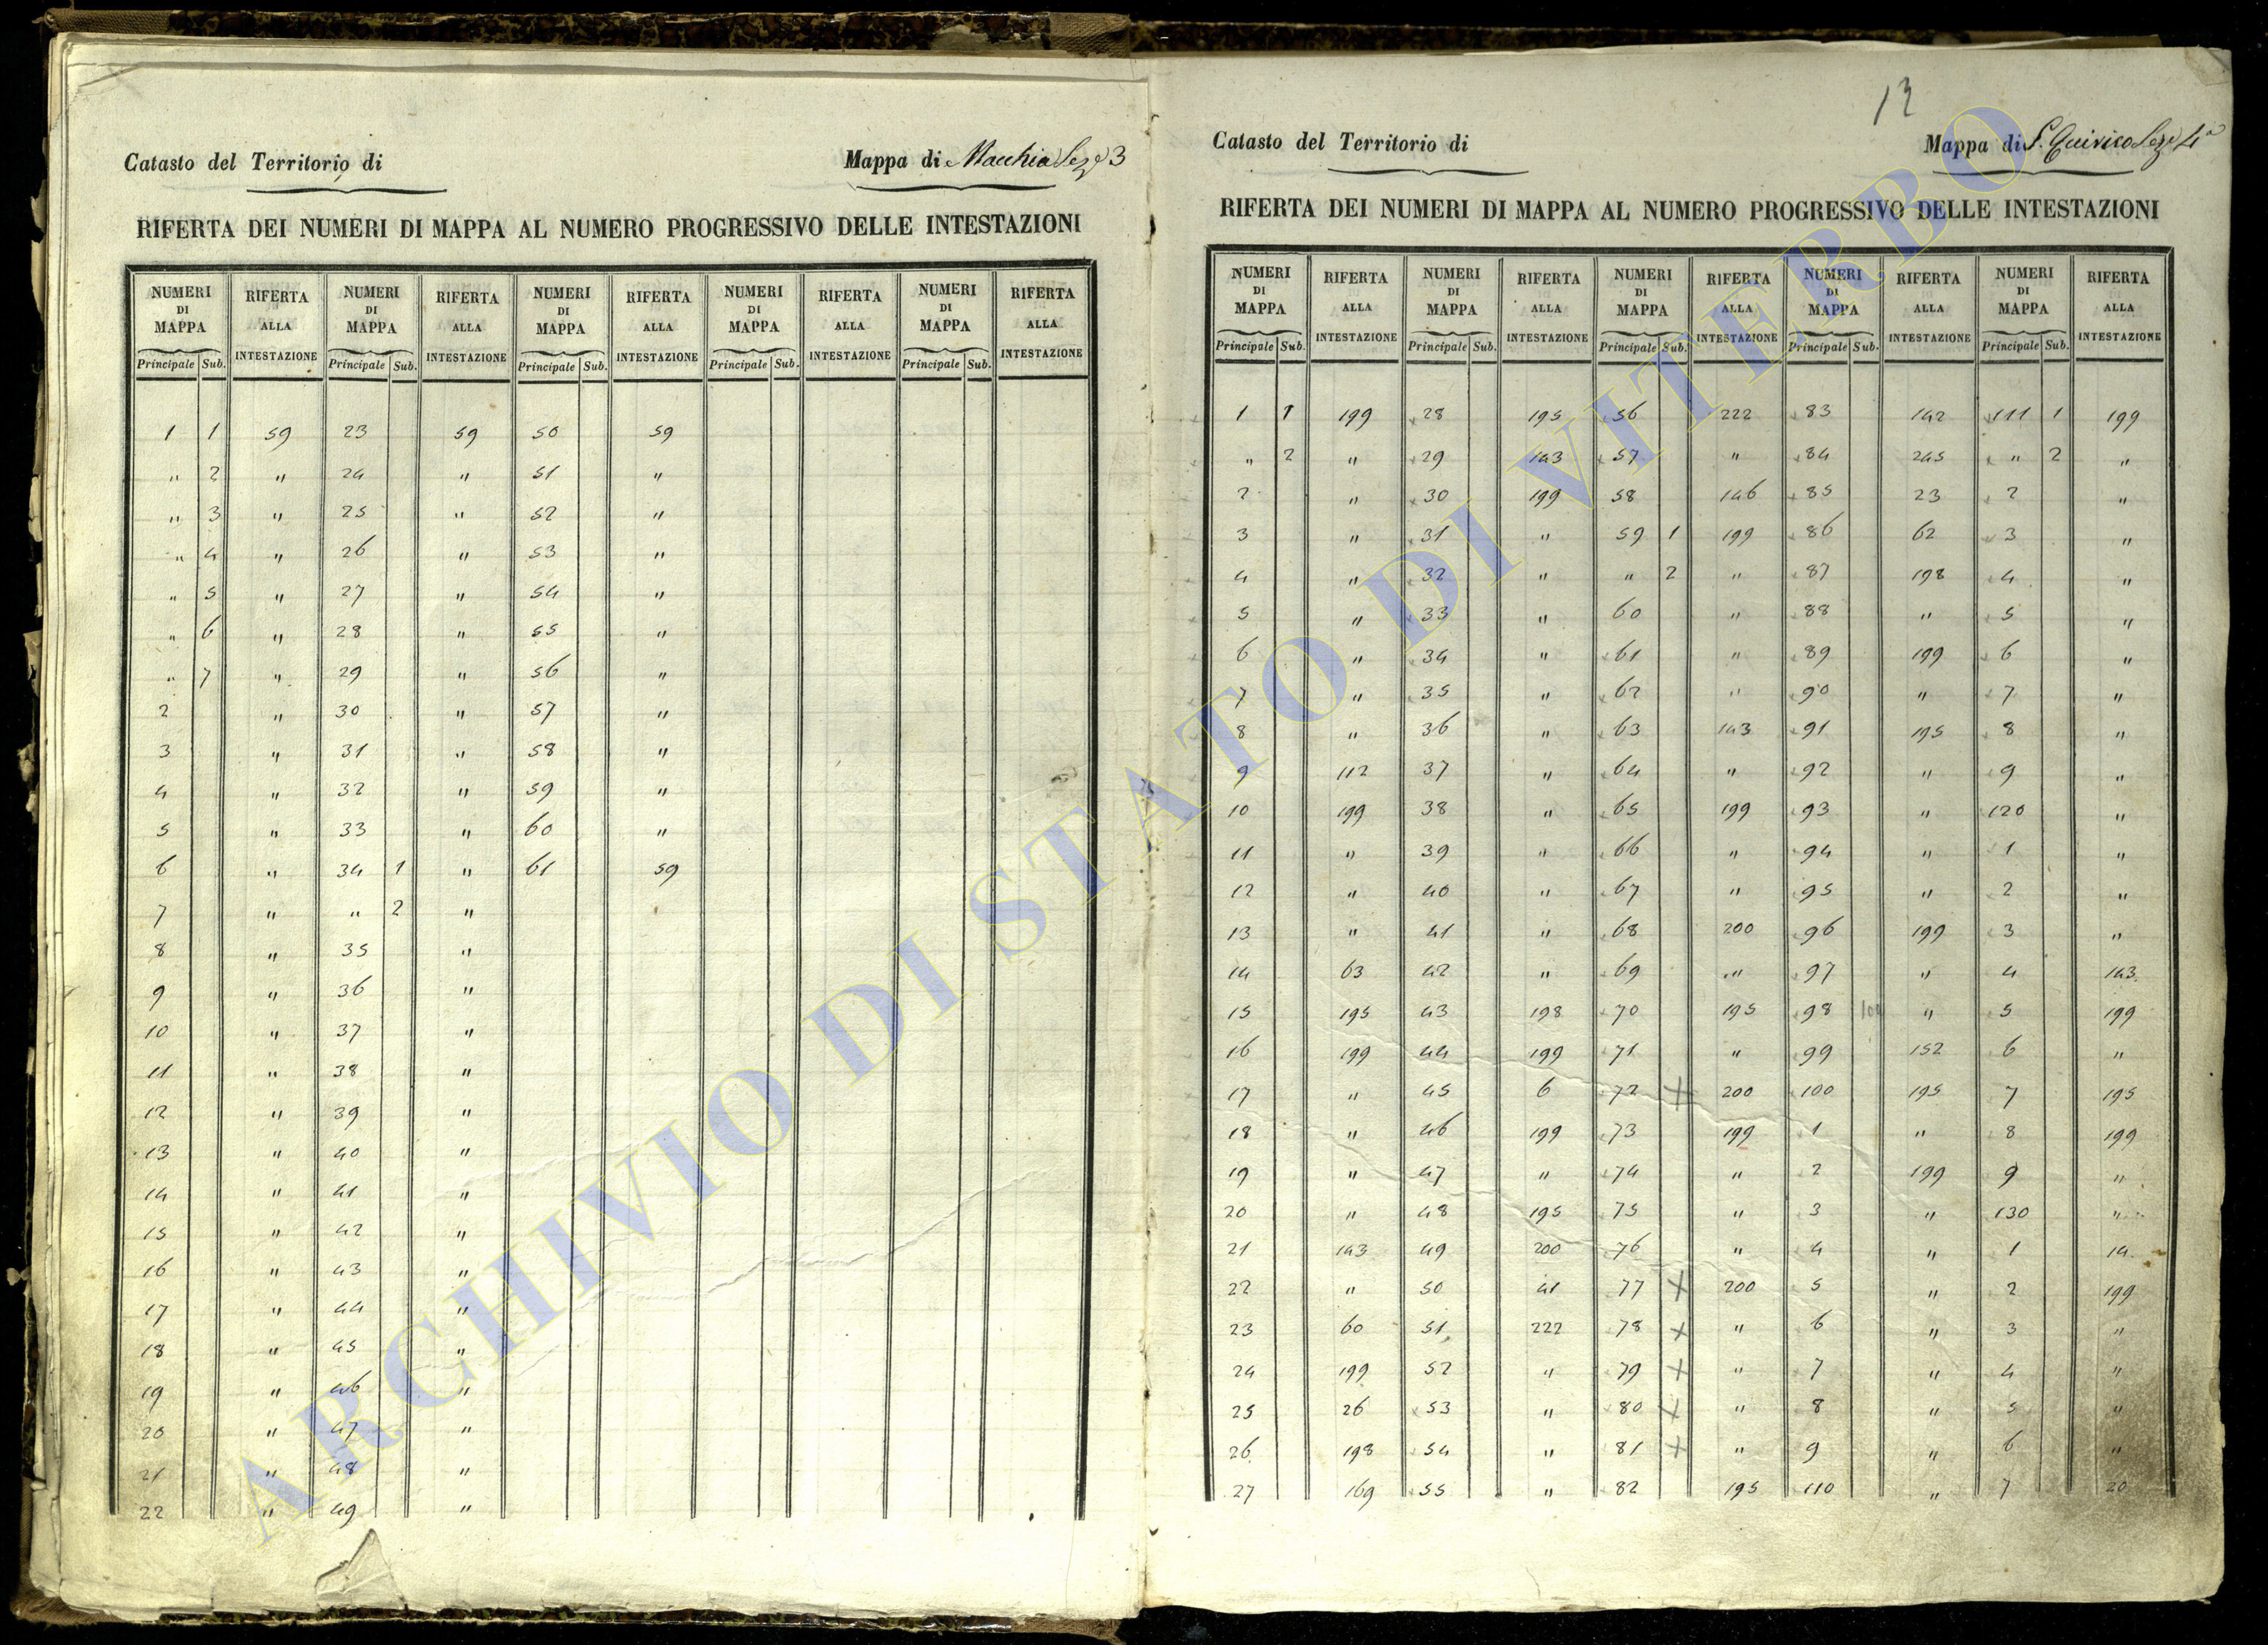 Catasto del Territorio di
Mappa di Macchia Sez.e 3
RIFERTA DEI NUMERI DI MAPPA AL NUMERO PROGRESSIVO DELLE INTESTAZIONI
NUMERI DI MAPPA RIFERTA ALLA INTESTAZIONE NUMERI DI MAPPA RIFERTA ALLA INTESTAZIONE NUMERI DI MAPPA RIFERTA ALLA INTESTAZIONE NUMERI DI MAPPA RIFERTA ALLA INTESTAZIONE NUMERI DI MAPPA RIFERTA ALLA INTESTAZIONE
Principale Sub. Principale Sub. Principale Sub. Principale Sub. Principale Sub.
1 1 59 23 59 50 59
" 2 " 24 " 51 "
" 3 " 25 " 52 "
" 4 " 26 " 53 "
" 5 " 27 " 54 "
" 6 " 28 " 55 "
" 7 " 29 " 56 "
2 " 30 " 57 "
3 " 31 " 58 "
4 " 32 " 59 "
5 " 33 " 60 "
6 " 34 1 " 61 59
7 " " 2 "
8 " 35 "
9 " 36 "
10 " 37 "
11 " 38 "
12 " 39 "
13 " 40 "
14 " 41 "
15 " 42 "
16 " 43 "
17 " 44 "
18 " 45 "
19 " 46 "
20 " 47 "
21 " 48 "
22 " 49 "
Catasto del Territorio di
Mappa di S. Quirico Sez.e 4a
RIFERTA DEI NUMERI DI MAPPA AL NUMERO PROGRESSIVO DELLE INTESTAZIONI
NUMERI DI MAPPA RIFERTA ALLA INTESTAZIONE NUMERI DI MAPPA RIFERTA ALLA INTESTAZIONE NUMERI DI MAPPA RIFERTA ALLA INTESTAZIONE NUMERI DI MAPPA RIFERTA ALLA INTESTAZIONE NUMERI DI MAPPA RIFERTA ALLA INTESTAZIONE
Principale Sub. Principale Sub. Principale Sub. Principale Sub. Principale Sub.
1 1 199 28 195 56 222 83 142 111 1 199
" 2 " 29 143 57 " 84 245 " 2 "
2 " 30 199 58 146 85 23 2 "
3 " 31 " 59 1 199 86 62 3 "
4 " 32 " " 2 " 87 198 4 "
5 " 33 " 60 " 88 " 5 "
6 " 34 " 61 " 89 199 6 "
7 " 35 " 62 " 90 " 7 "
8 " 36 " 63 143 91 195 8 "
9 112 37 " 64 " 92 " 9 "
10 199 38 " 65 199 93 " 120 "
11 " 39 " 66 " 94 " 1 "
12 " 40 " 67 " 95 " 2 "
13 " 41 " 68 200 96 199 3 "
14 63 42 " 69 " 97 " 4 143
15 195 43 198 70 195 98 " 5 199
16 199 44 199 71 " 99 152 6 "
17 " 45 6 72 + 200 100 195 7 195
18 " 46 199 73 199 1 " 8 199
19 " 47 " 74 " 2 199 9 "
20 " 48 195 75 " 3 " 130 "
21 143 49 200 76 " 4 " 1 14
22 " 50 41 77 + 200 5 " 2 199
23 60 51 222 78 + " 6 " 3 "
24 199 52 " 79 + " 7 " 4 "
25 26 53 " 80 + " 8 " 5 "
26 198 54 " 81 + " 9 " 6 "
27 169 55 " 82 195 110 " 7 20
ARCHIVIO DI STATO DI VITERBO